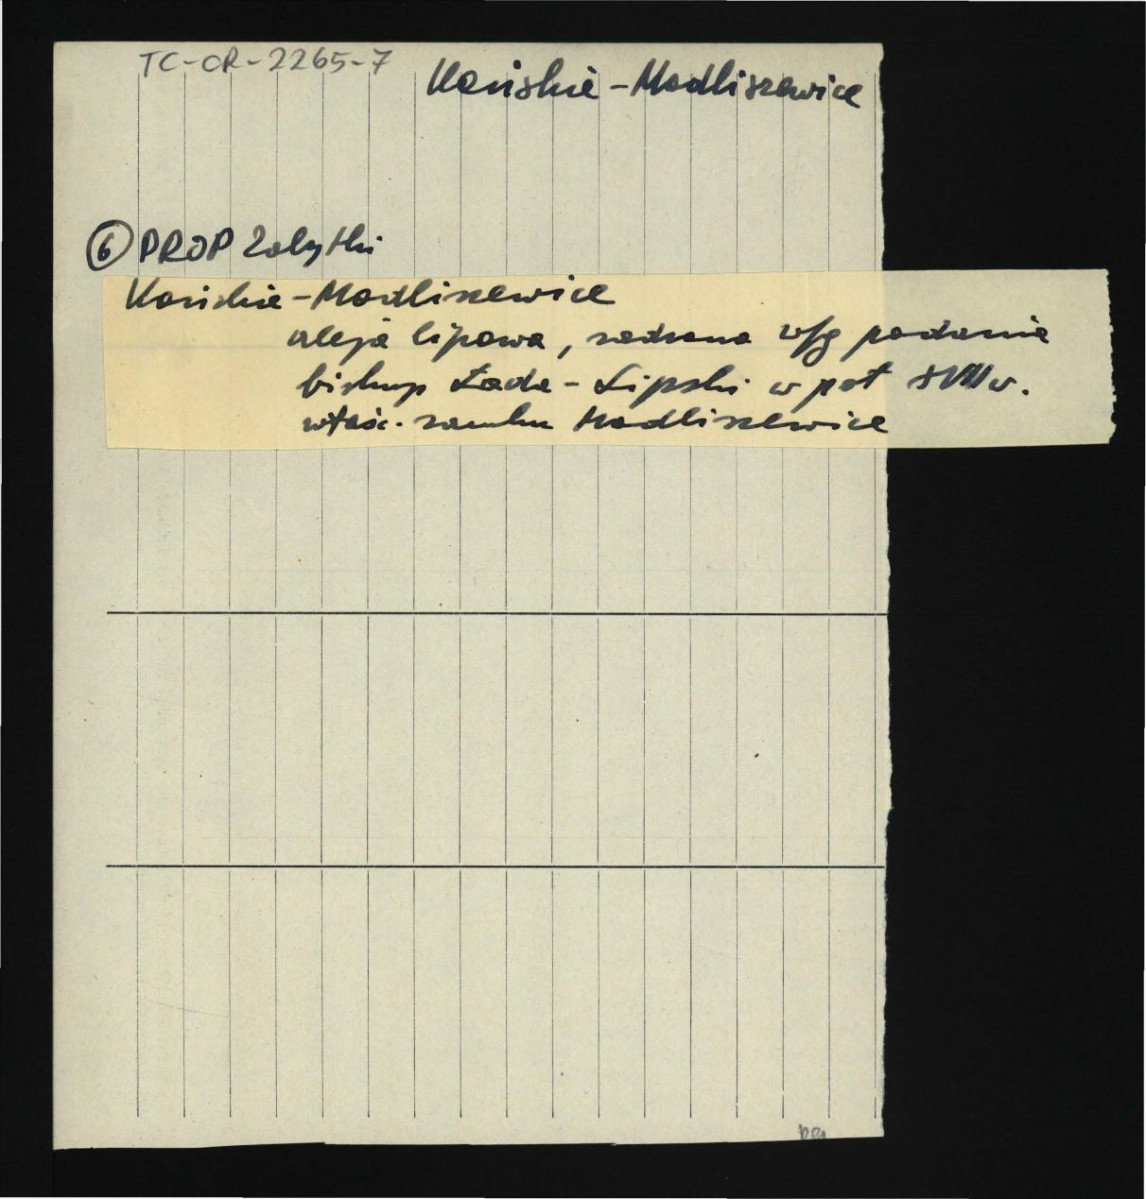 TC-CR-2265-7
Końskie - Modliszewice
6 PROP Zabytki
Końskie - Modliszewice
aleja lipowa, sadzona w/g podania
biskup Łada - Lipski w poł XVIII w.
właśc. zamku Modliszewice